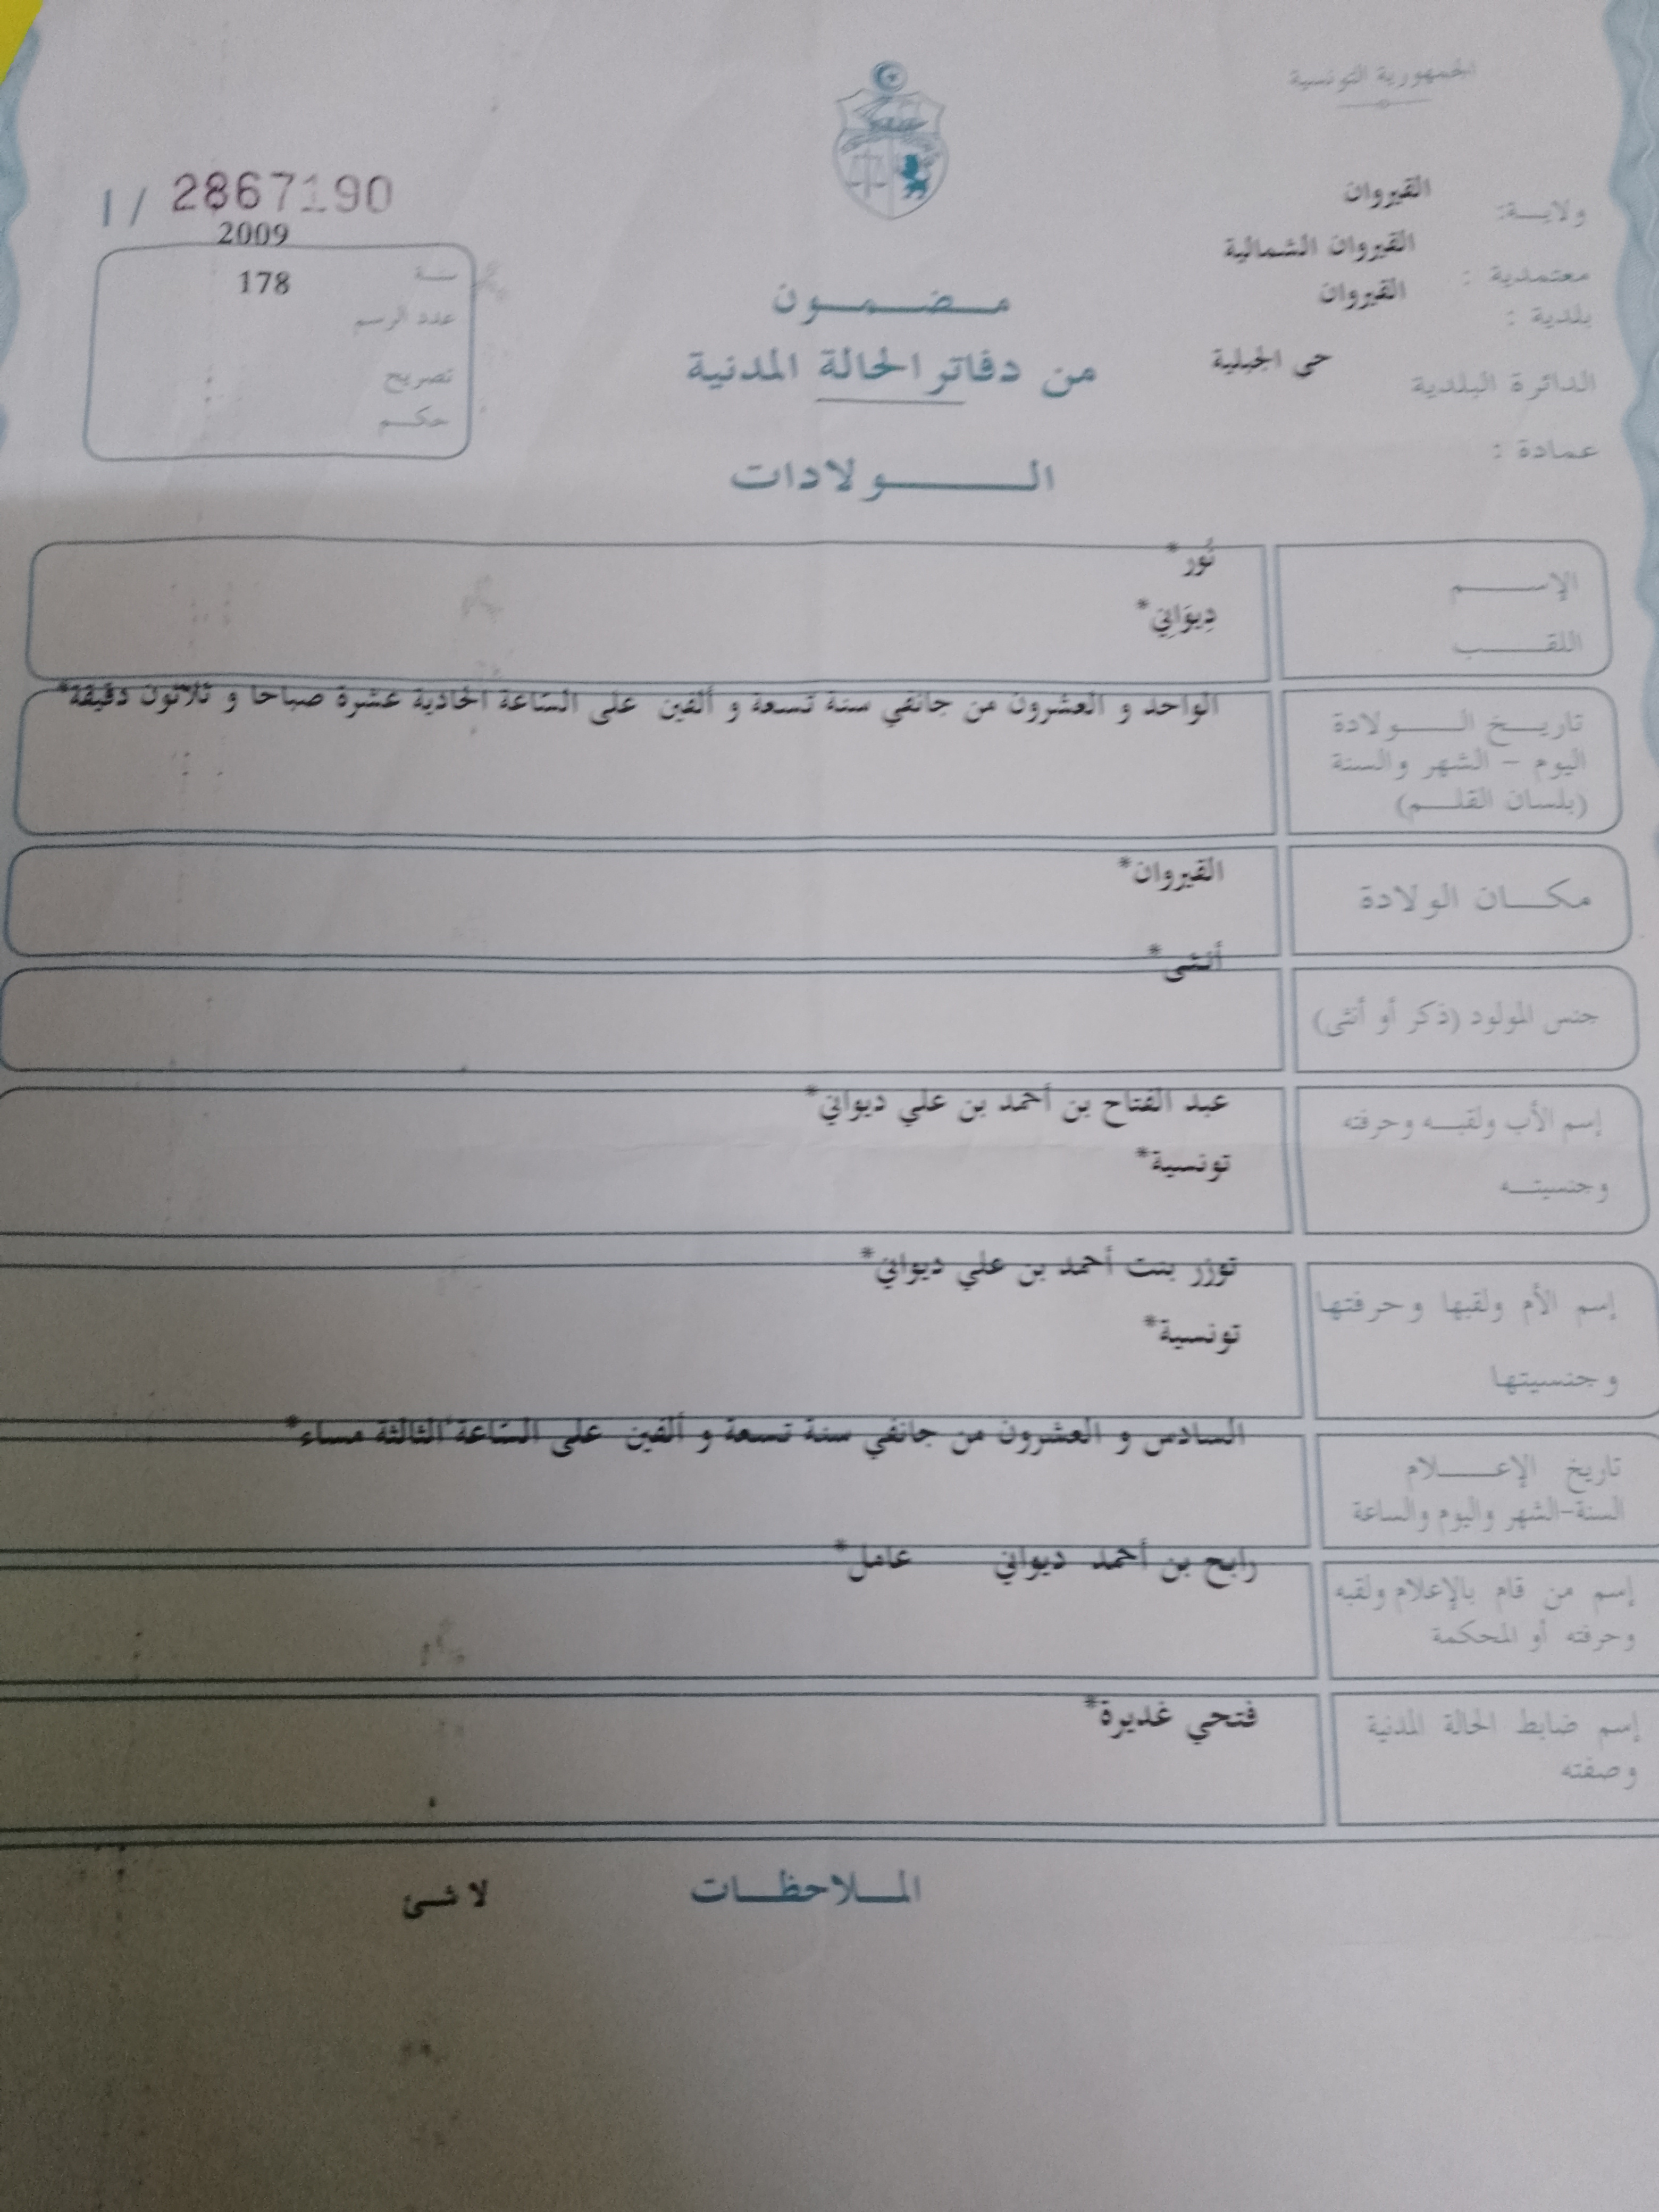 الجمهورية التونسية
ولايـــة: القيروان
معتمدية : القيروان الشمالية
بلدية : القيروان
الدائرة البلدية حي الجبلية
عمادة :
I / 2867190
2009
سـنة
178
عدد الرسم
تصريح
حكـم
مـضـمـون
من دفاتر الحالة المدنية
الـولادات
الإســم نُور*
اللقـب دِيوَانِي*
تاريـخ الـولادة الواحد و العشرون من جانفي سنة تسعة و ألفين على السّاعة الحادية عشرة صباحا و ثلاثون دقيقة*
اليوم - الشهر والسنة
(بلسان القلـم)
مكـان الولادة القيروان*
أنثى*
جنس المولود (ذكر أو أنثى)
إسم الأب ولقبـه وحرفته عبد الفتاح بن أحمد بن علي ديواني*
وجنسيتـه تونسية*
إسم الأم ولقبها وحرفتها توزر بنت أحمد بن علي ديواني*
وجنسيتها تونسية*
تاريخ الإعـلام السادس و العشرون من جانفي سنة تسعة و ألفين على السّاعة الثالثة مساء*
السنة-الشهر واليوم والساعة
إسم من قام بالإعلام ولقبه رابح بن أحمد ديواني عامل*
وحرفته أو المحكمة
إسم ضابط الحالة المدنية فتحي غديرة*
وصفته
المـلاحظـات لا شئ